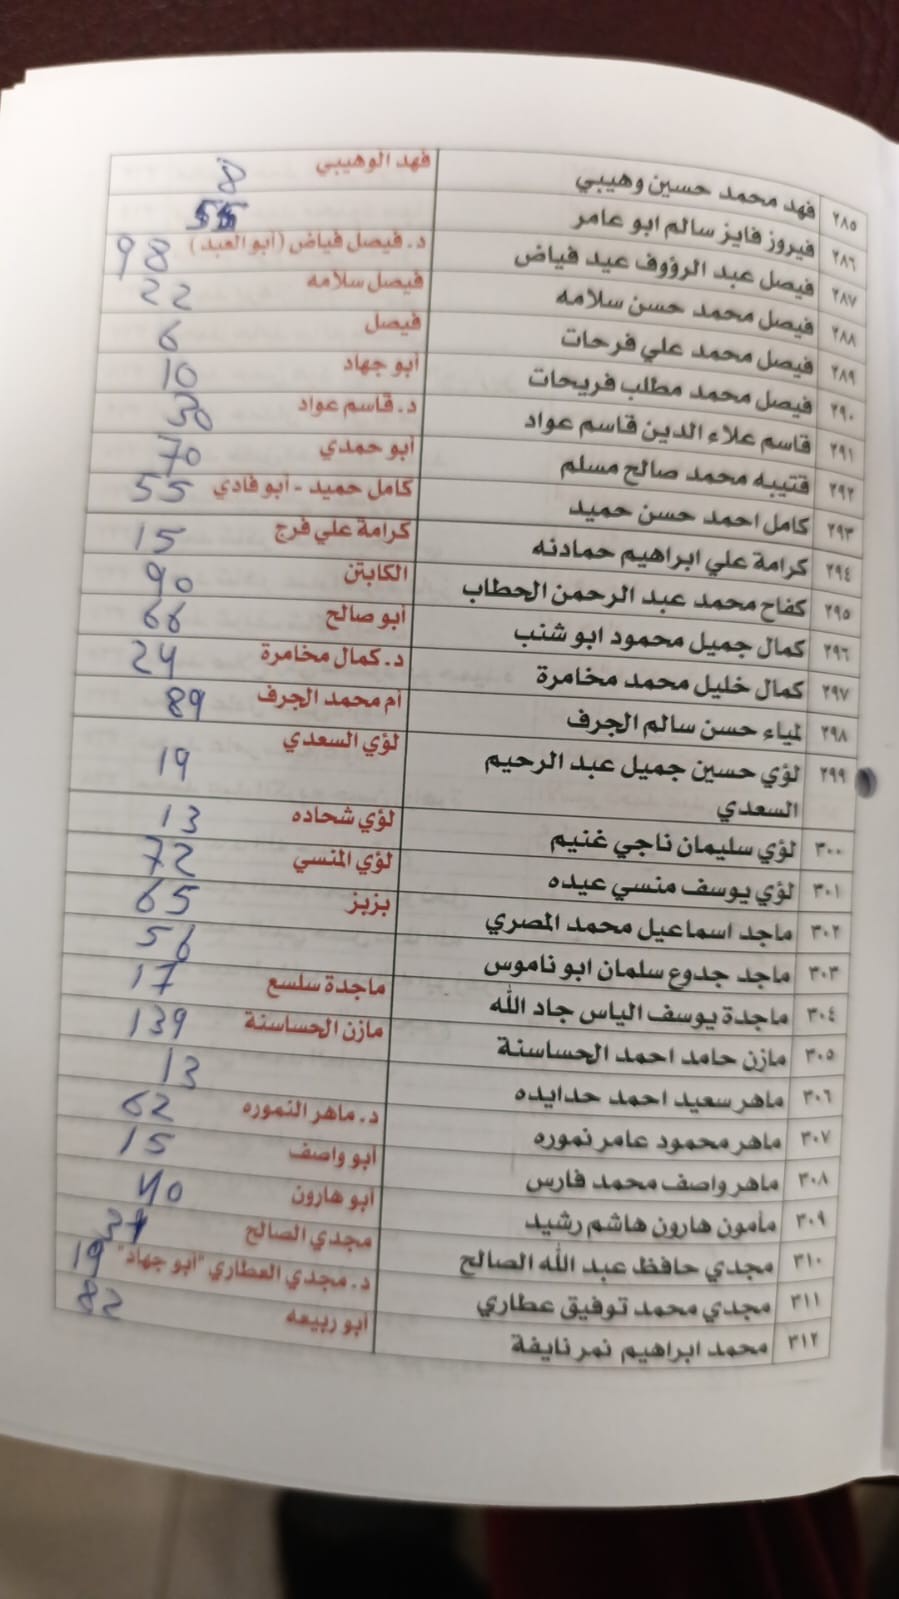 ٢٨٥ فهد محمد حسين وهيبي فهد الوهيبي 8
٢٨٦ فيروز فايز سالم ابو عامر 55
٢٨٧ فيصل عبد الرؤوف عيد فياض د. فيصل فياض (أبو العبد) 98
٢٨٨ فيصل محمد حسن سلامه فيصل سلامه 22
٢٨٩ فيصل محمد علي فرحات فيصل 6
٢٩٠ فيصل محمد مطلب فريحات أبو جهاد 10
٢٩١ قاسم علاء الدين قاسم عواد د. قاسم عواد 30
٢٩٢ قتيبه محمد صالح مسلم أبو حمدي 70
٢٩٣ كامل احمد حسن حميد كامل حميد - أبو فادي 55
٢٩٤ كرامة علي ابراهيم حمادنه كرامة علي فرج 15
٢٩٥ كفاح محمد عبد الرحمن الحطاب الكابتن 90
٢٩٦ كمال جميل محمود ابو شنب أبو صالح 66
٢٩٧ كمال خليل محمد مخامرة د. كمال مخامرة 24
٢٩٨ لمياء حسن سالم الجرف أم محمد الجرف 89
٢٩٩ لؤي حسين جميل عبد الرحيم لؤي السعدي 19
السعدي
٣٠٠ لؤي سليمان ناجي غنيم لؤي شحاده 13
٣٠١ لؤي يوسف منسي عيده لؤي المنسي 72
٣٠٢ ماجد اسماعيل محمد المصري بزبز 65
٣٠٣ ماجد جدوع سلمان ابو ناموس 56
٣٠٤ ماجدة يوسف الياس جاد الله ماجدة سلسع 17
٣٠٥ مازن حامد احمد الحساسنة مازن الحساسنة 139
٣٠٦ ماهر سعيد احمد حدايده 13
٣٠٧ ماهر محمود عامر نموره د. ماهر النموره 62
٣٠٨ ماهر واصف محمد فارس أبو واصف 15
٣٠٩ مأمون هارون هاشم رشيد أبو هارون 40
٣١٠ مجدي حافظ عبد الله الصالح مجدي الصالح
٣١١ مجدي محمد توفيق عطاري د. مجدي العطاري "أبو جهاد" 19
٣١٢ محمد ابراهيم نمر نايفة أبو ربيعه 82